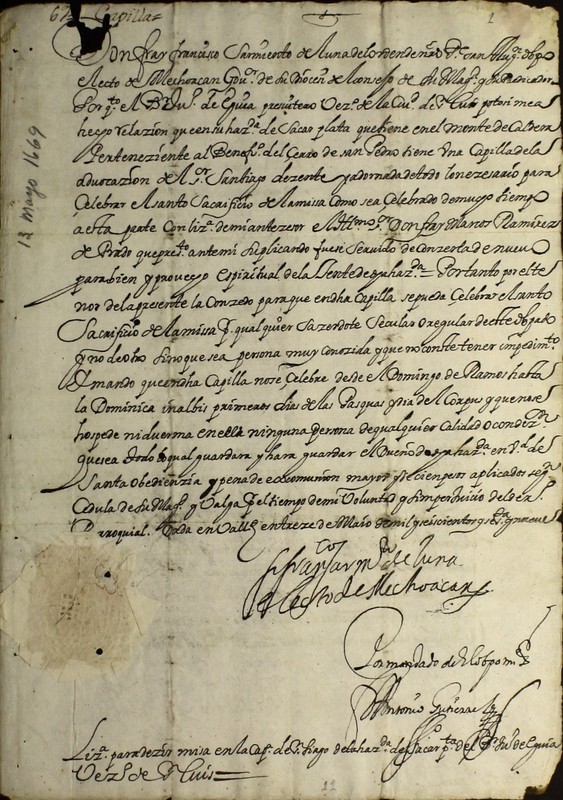 Capilla=
1
13 Mayo 1669
Don fray francisco Sarmiento de Luna del orden de nro Pe. san Augn. obpo
electo de Mechoacan Govr. de su Obispdo del Consejo de su Magd. y su Predicador
Por qto. el Br. Ju. de Eguia, presvitero Vezo. de la Ciud. de S. Luis potosi me a
hecho relazion que en su hazda. de sacar plata que tiene en el monte de Caldera
Perteneziente al Benefo. del Cerro de san Pedro tiene Una Capilla de la
advocazion de Sor. Santiago dezente y adornada de todo lo nezesario para
Celebrar el santo Sacrificio de la missa como se a Celebrado de mucho tiempo
a esta parte Con liza. de mi antezesor el Don fray Marcos Ramirez
de Prado que presto. ante mi suplicando fuese servido de Conzerla de nuevo
para bien y provecho espiritual de la Jente de su hazda.= Por tanto por el te
nor de la presente la Conzedo para que en dha Capilla se pueda Celebrar el santo
Sacrificio de la missa Pr. qualquier sazerdote Secular o regular de este obpdo
y no de otro sino que sea persona muy Conozida y que no conste tener impedimto.
y mando que en dha Capilla no se Celebre desde el Domingo de Ramos hasta
la Dominica in albis primeros dias de las Pasquas y dia de Corpus y que no se
hospede ni duerma en ella ninguna persona de qualquier Calidad o condizon.
que sea todo lo qual guardara y hara guardar el Dueño de dha hazda. en Vd. de
Santa Obedienzia y pena de excomunion mayor y de cien pesos aplicados segn.
Cedula de su Magd. y Valga Pr. el tiempo de mi Voluntad y sin perjuicio del der.
Parroquial. Dada en Valld. en treze de Maio de mil y seiscientos y sesta. y nueve
fr. franco Sarmto. de Luna
electo de Mechoacan
Por mandado de el obpo mi Sr.
Antonio Gutierrez
Liza. para dezir misa en la Capa. de S.tiago de la hazda. de sacar pta. del Br. Ju. de Eguia
Vezo. de S. Luis=
11